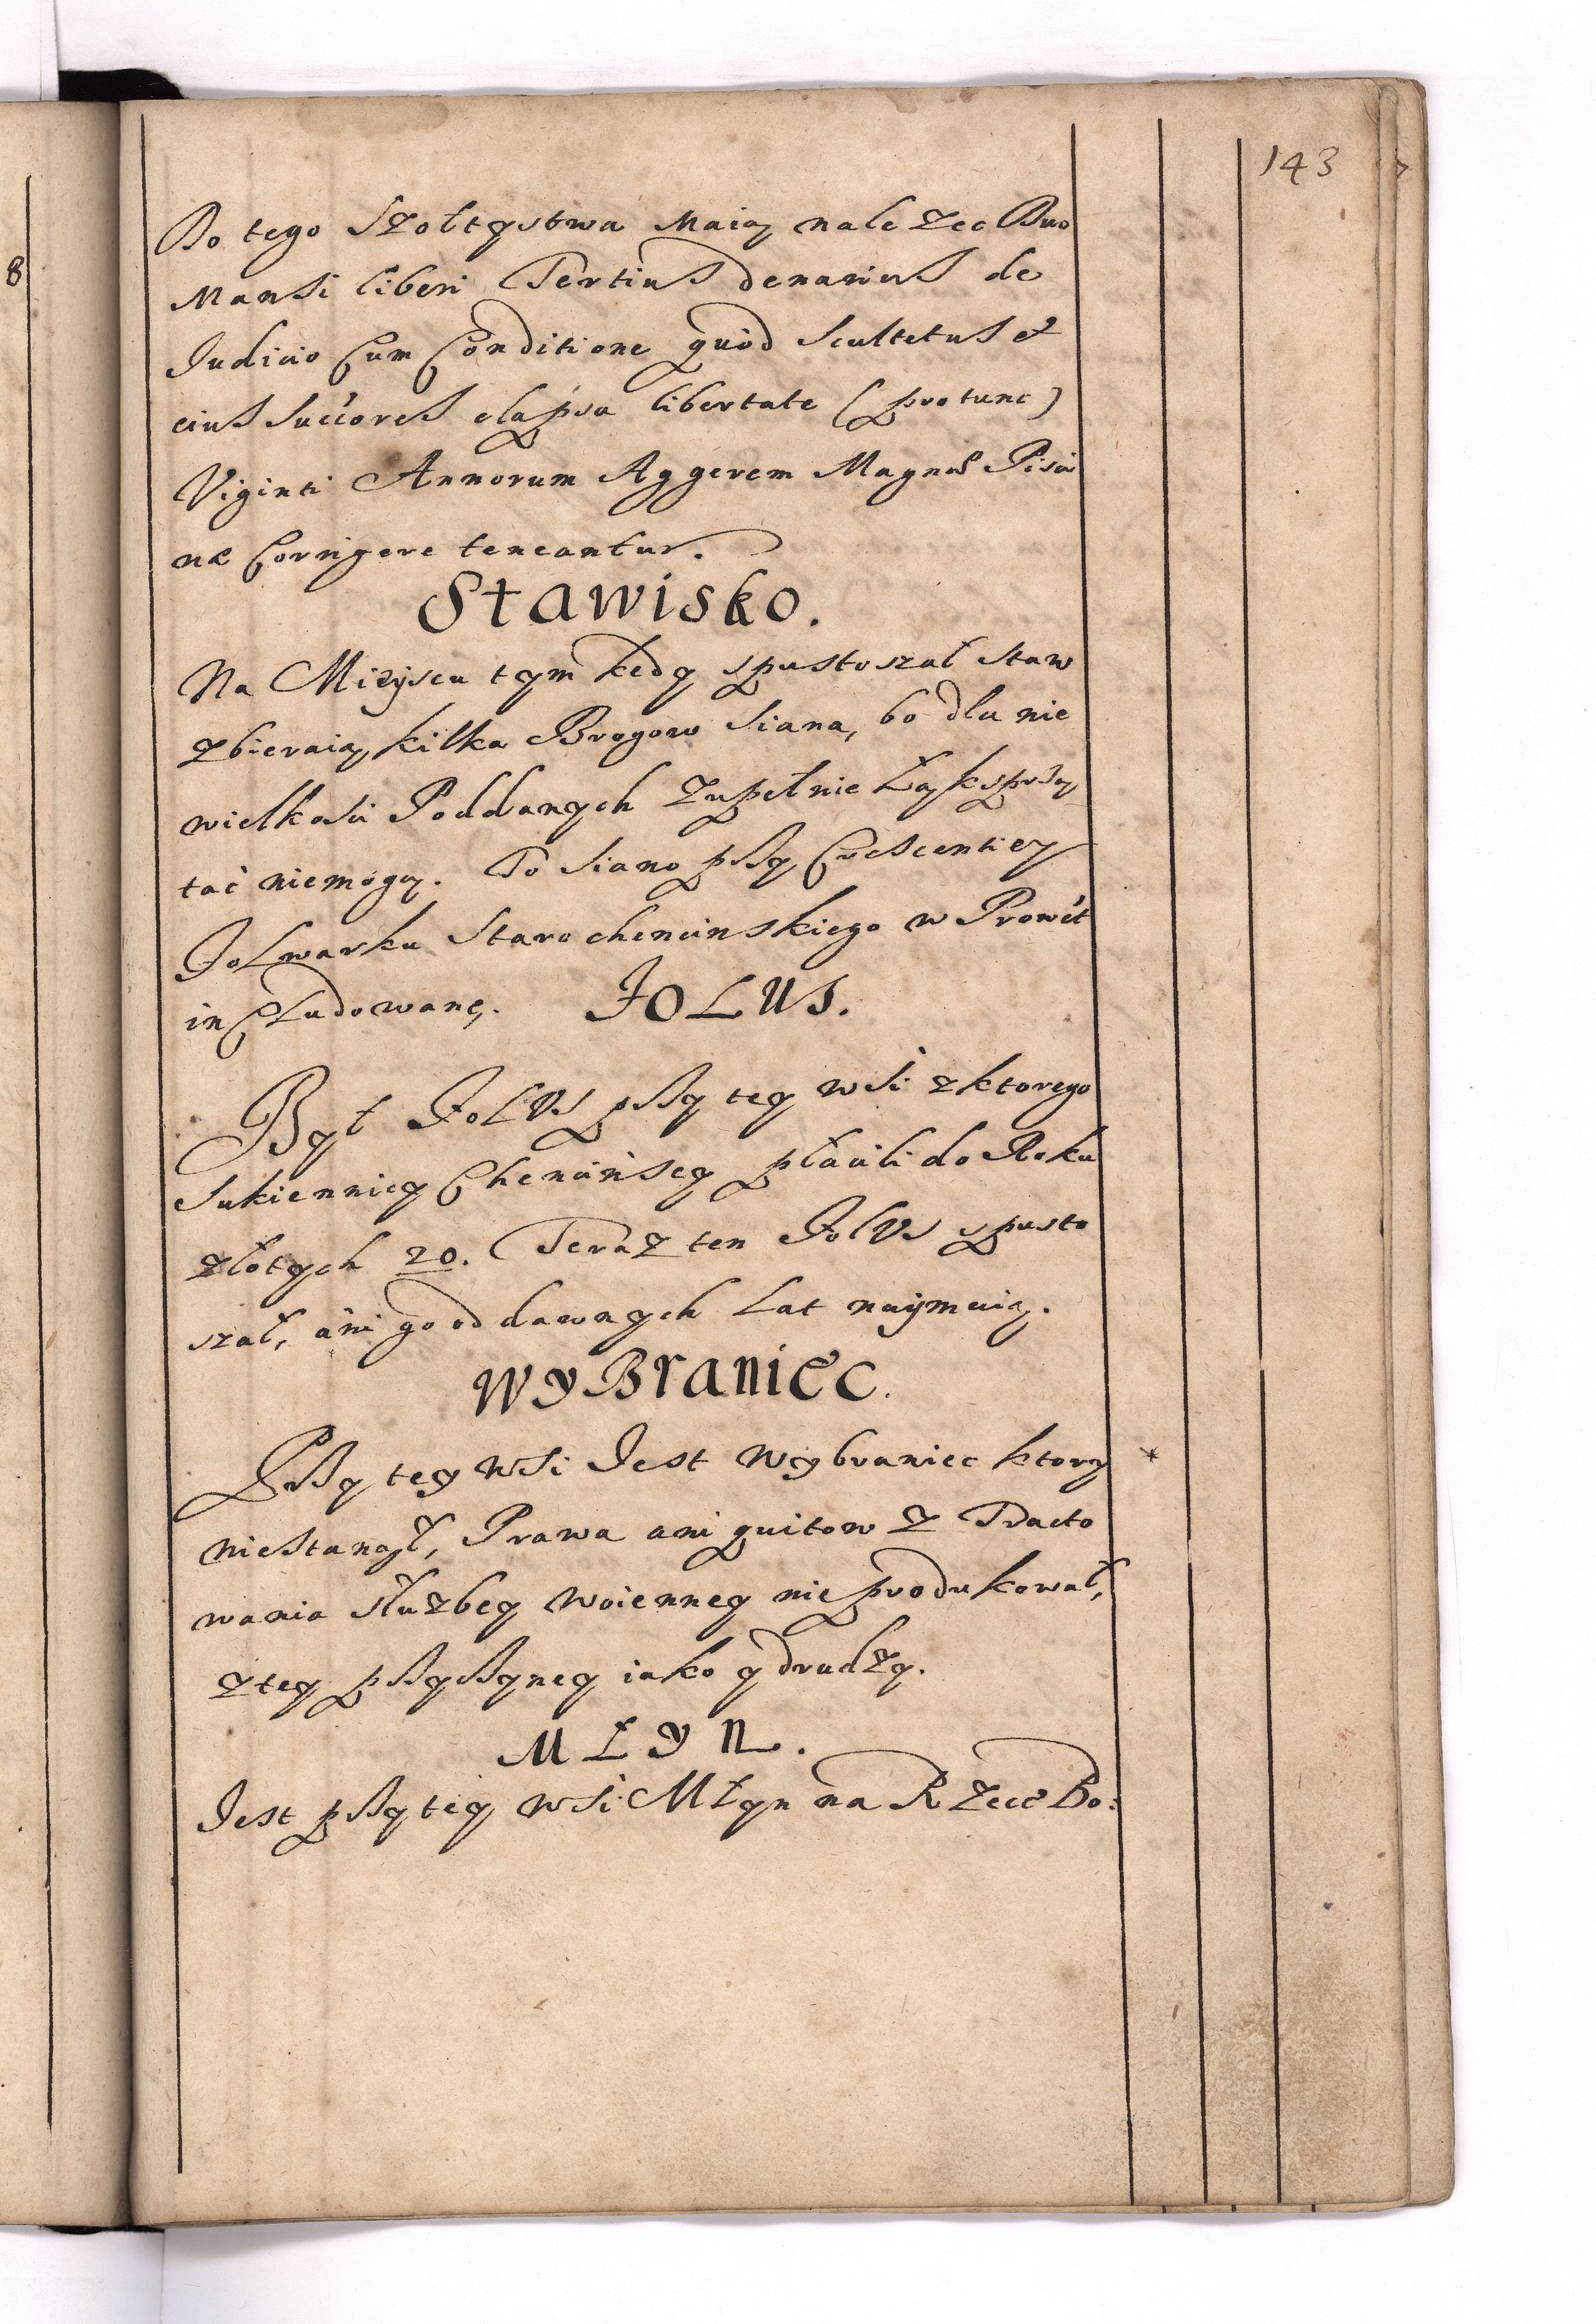 143
8
Do tego Szołtystwa Maią należec Duo
Mansi liberi Tertius denarius de
Judicio Cum Conditione quòd Scultetus et
eius Succ̀ores elapsa libertate (pro tunc)
Viginti Annorum Aggerem Magnæ Pisci
næ Corrigere teneantur.
Stawisko.
Na Mieyscu tym kędy spustoszał Staw
zbieraią kilka Brogow Siana, bo dla nie
wielkości Poddanych zupełnie Łąk sprzą
tać niemogą. To Siano przy Crescentiey
Folwarku Starochencinskiego w Prowẽt
includowane. FOLUS.
Był FolVs przy tey wsi z ktorego
Sukiennicy Chencińscy płacili do Roku
złotych 20. Teraz ten FolVs spusto
szał, ani go od dawnych Lat naymuią.
WyBraniec.
Przy tey wsi Jest Wybraniec ktory
niestanął, Prawa ani quitow z Tracto
wania służbey woienney nieprodukował,
z tey przyczyney iako y drudzy.
MŁYN.
Jest przy tey wsi Młyn na Rzece Bo: